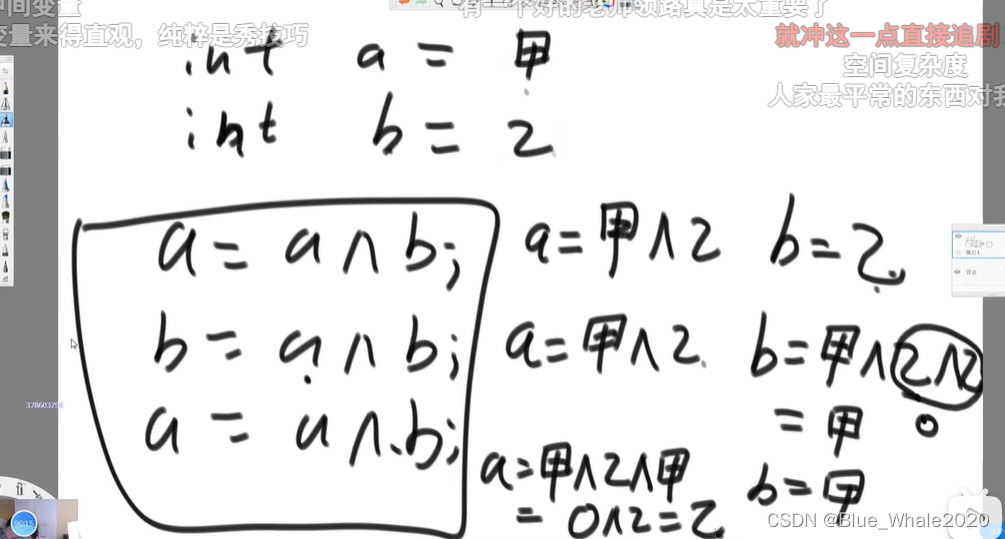 中间变量
有一个好的老师领路真是太重要了
变量来得直观，纯粹是秀技巧
就冲这一点直接追剧
空间复杂度
人家最平常的东西对我
int a = 甲
int b = 乙
a = a ∧ b; a=甲∧乙 b=乙
b = a ∧ b; a=甲∧乙 b=甲∧乙∧乙
=甲 0
a = a ∧ b; a=甲∧乙∧甲 b=甲
= 0∧乙=乙
378603798
90:15
CSDN @Blue_Whale2020